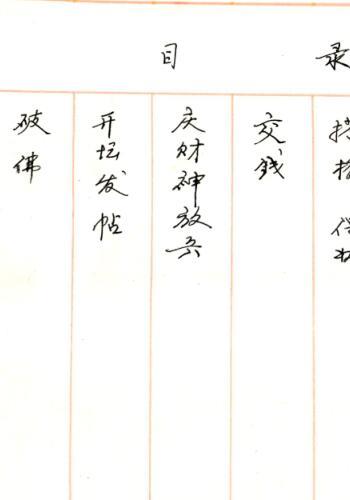 目录
交钱
庆财神放兵
开坛发帖
破佛